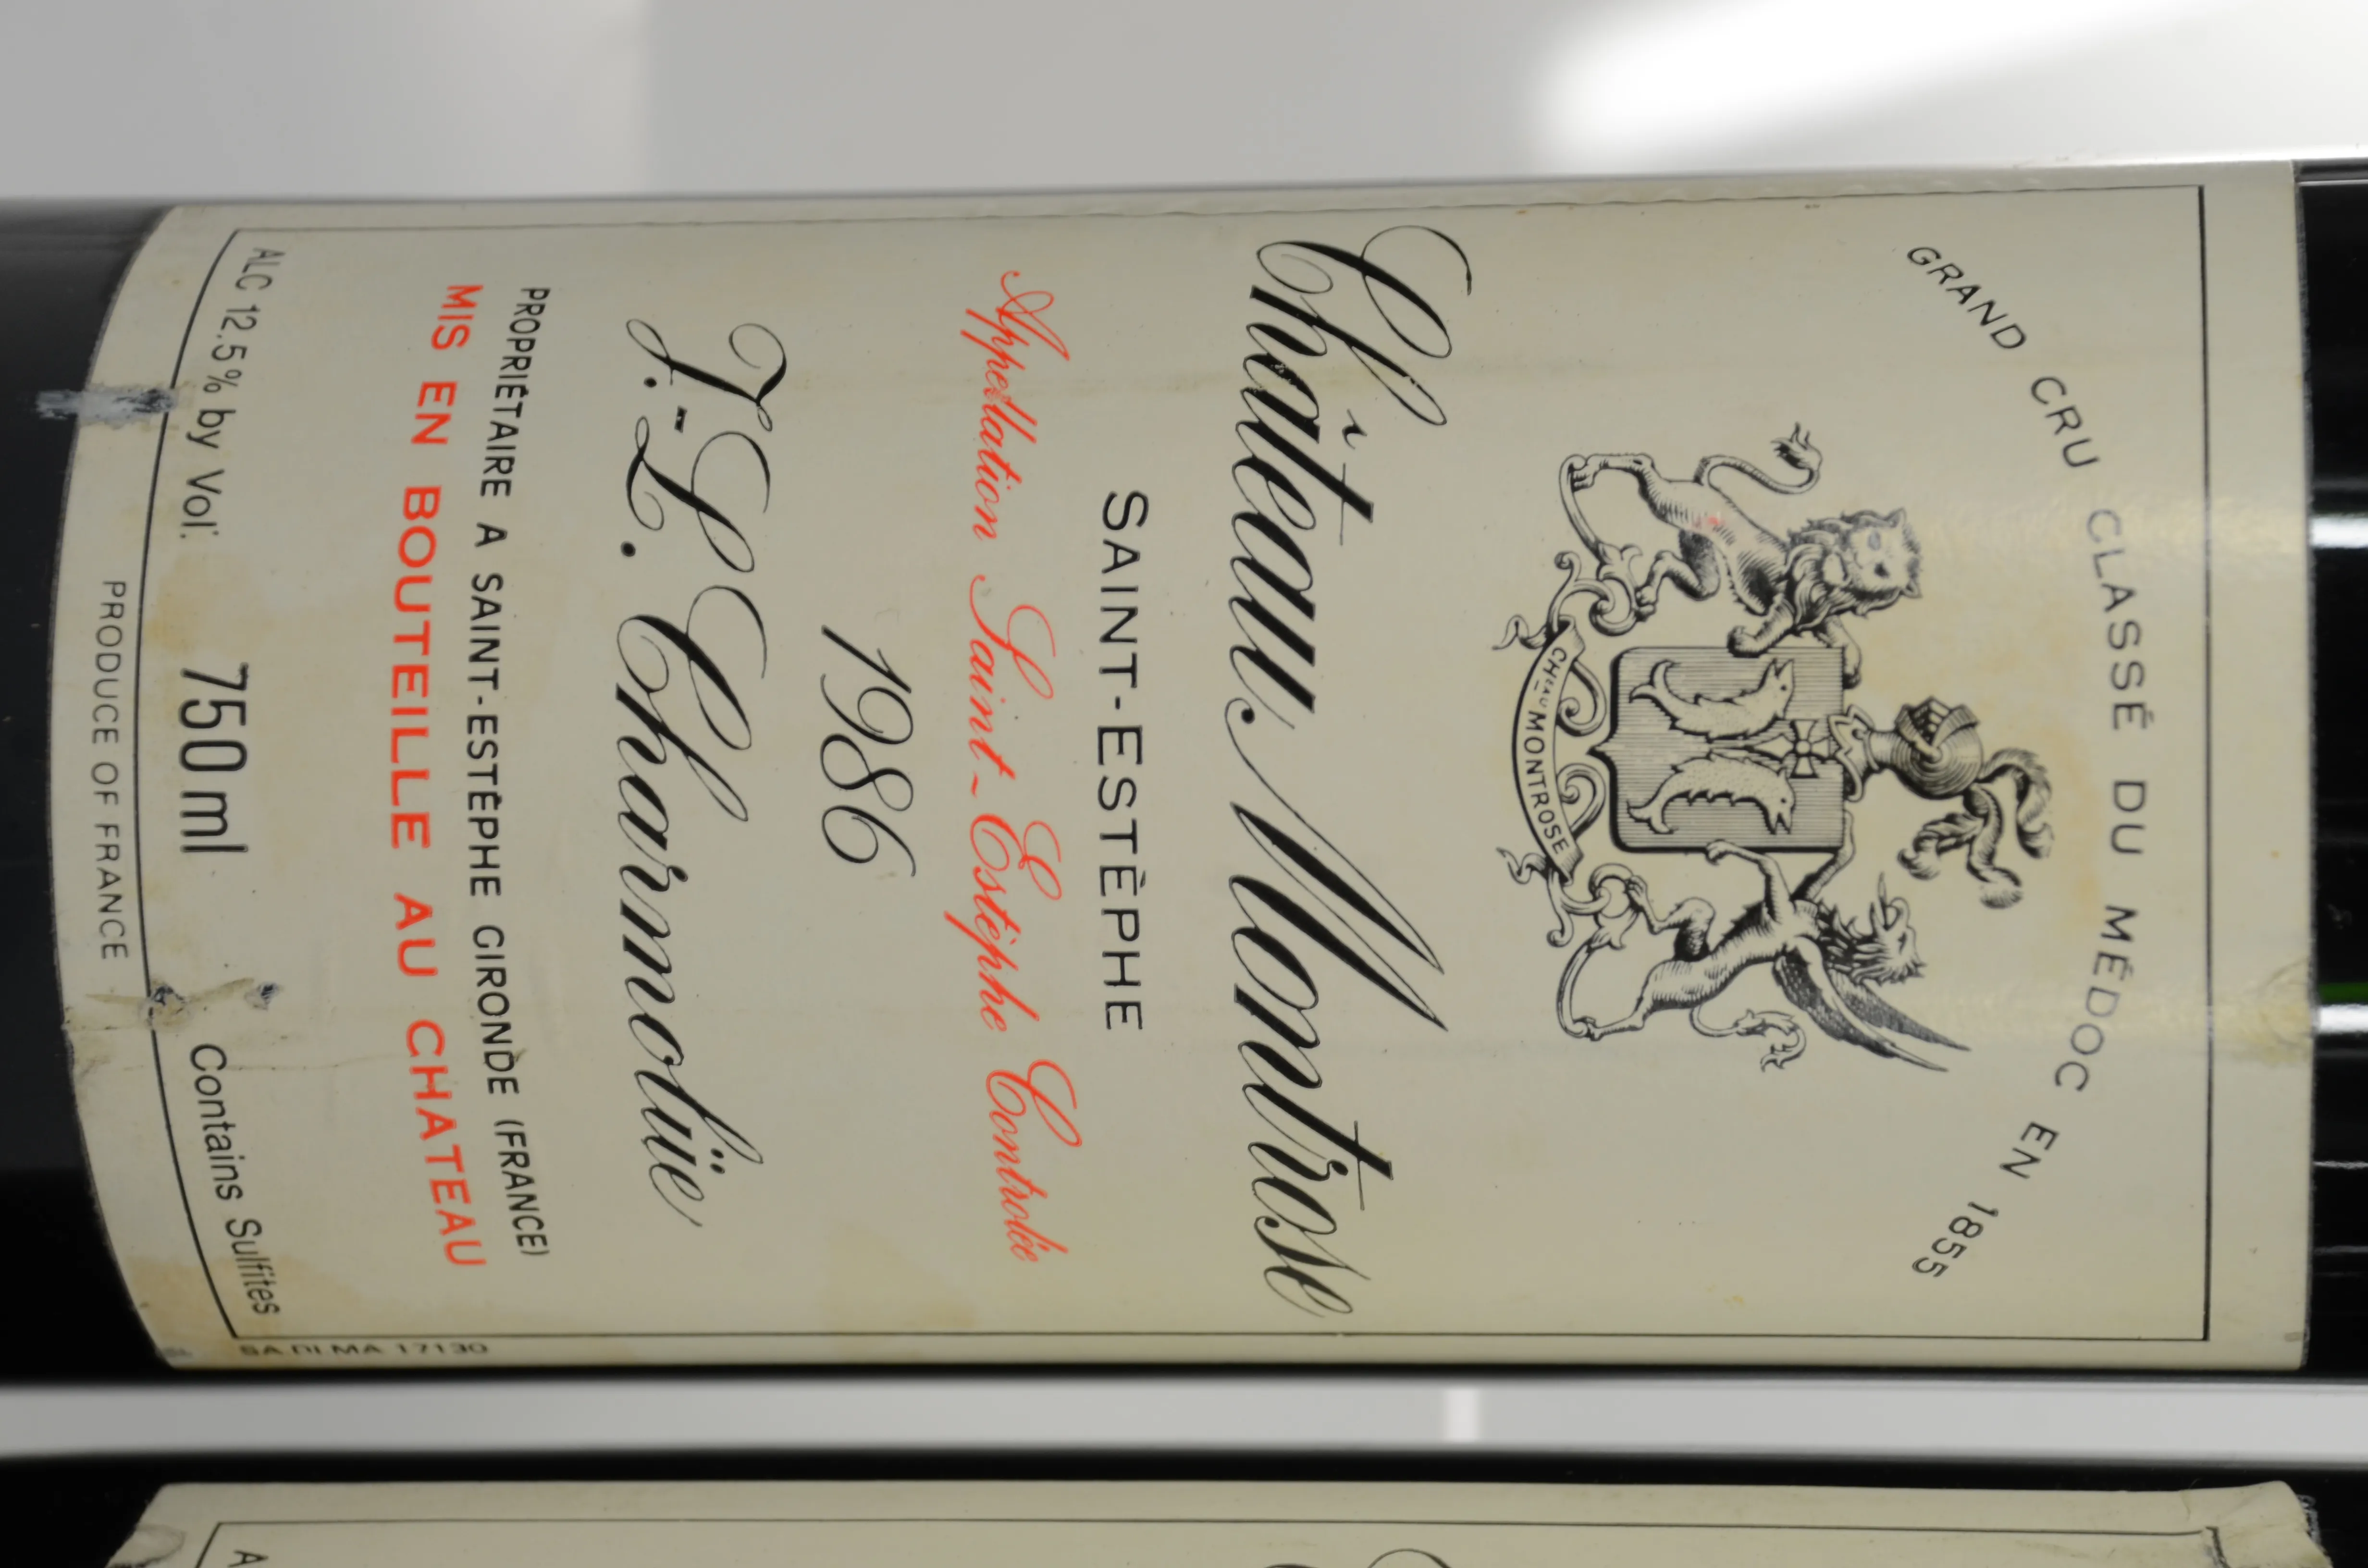 GRAND CRU CLASSÉ DU MÉDOC EN 1855
CHEAU MONTROSE
Château Montrose
SAINT-ESTÈPHE
Appellation Saint-Estèphe Contrôlée
1986
J.-L. Charmolüe
PROPRIÉTAIRE A SAINT-ESTÈPHE GIRONDE (FRANCE)
MIS EN BOUTEILLE AU CHATEAU
ALC 12.5% by Vol. 750 ml Contains Sulfites
PRODUCE OF FRANCE
SA DI MA 17130
A